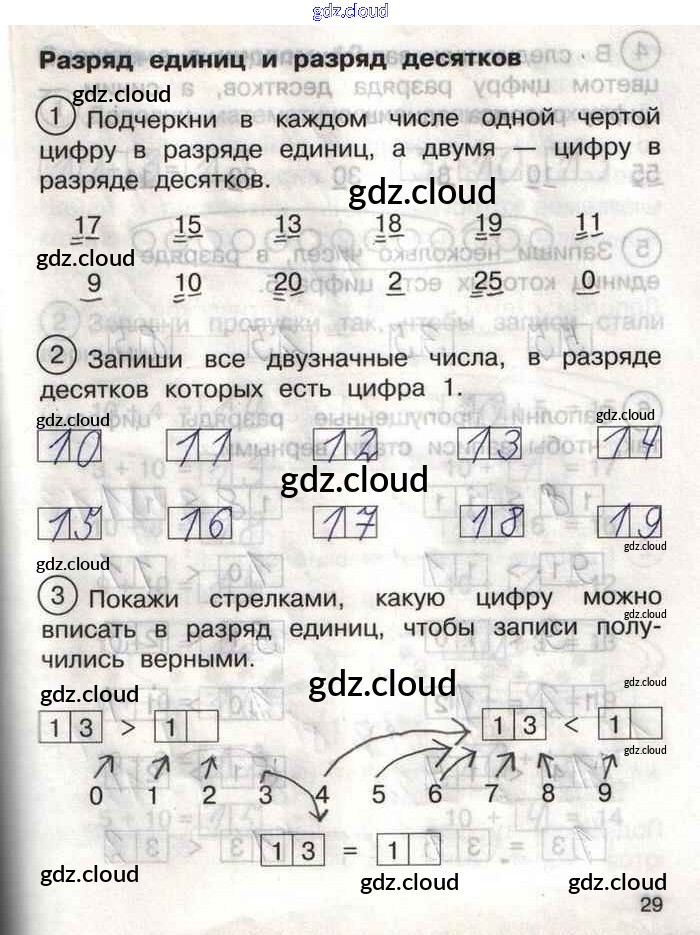 gdz.cloud
Разряд единиц и разряд десятков
gdz.cloud
1 Подчеркни в каждом числе одной чертой
цифру в разряде единиц, а двумя — цифру в
разряде десятков.
gdz.cloud
17 15 13 18 19 11
gdz.cloud
9 10 20 2 25 0
2 Запиши все двузначные числа, в разряде
десятков которых есть цифра 1.
gdz.cloud gdz.cloud
10 11 12 13 14
gdz.cloud
15 16 17 18 19
gdz.cloud
gdz.cloud
3 Покажи стрелками, какую цифру можно
gdz.cloud
вписать в разряд единиц, чтобы записи полу-
чились верными.
gdz.cloud gdz.cloud gdz.cloud
13 > 1 13 < 1
gdz.cloud
0 1 2 3 4 5 6 7 8 9
13 = 1
gdz.cloud gdz.cloud gdz.cloud
29